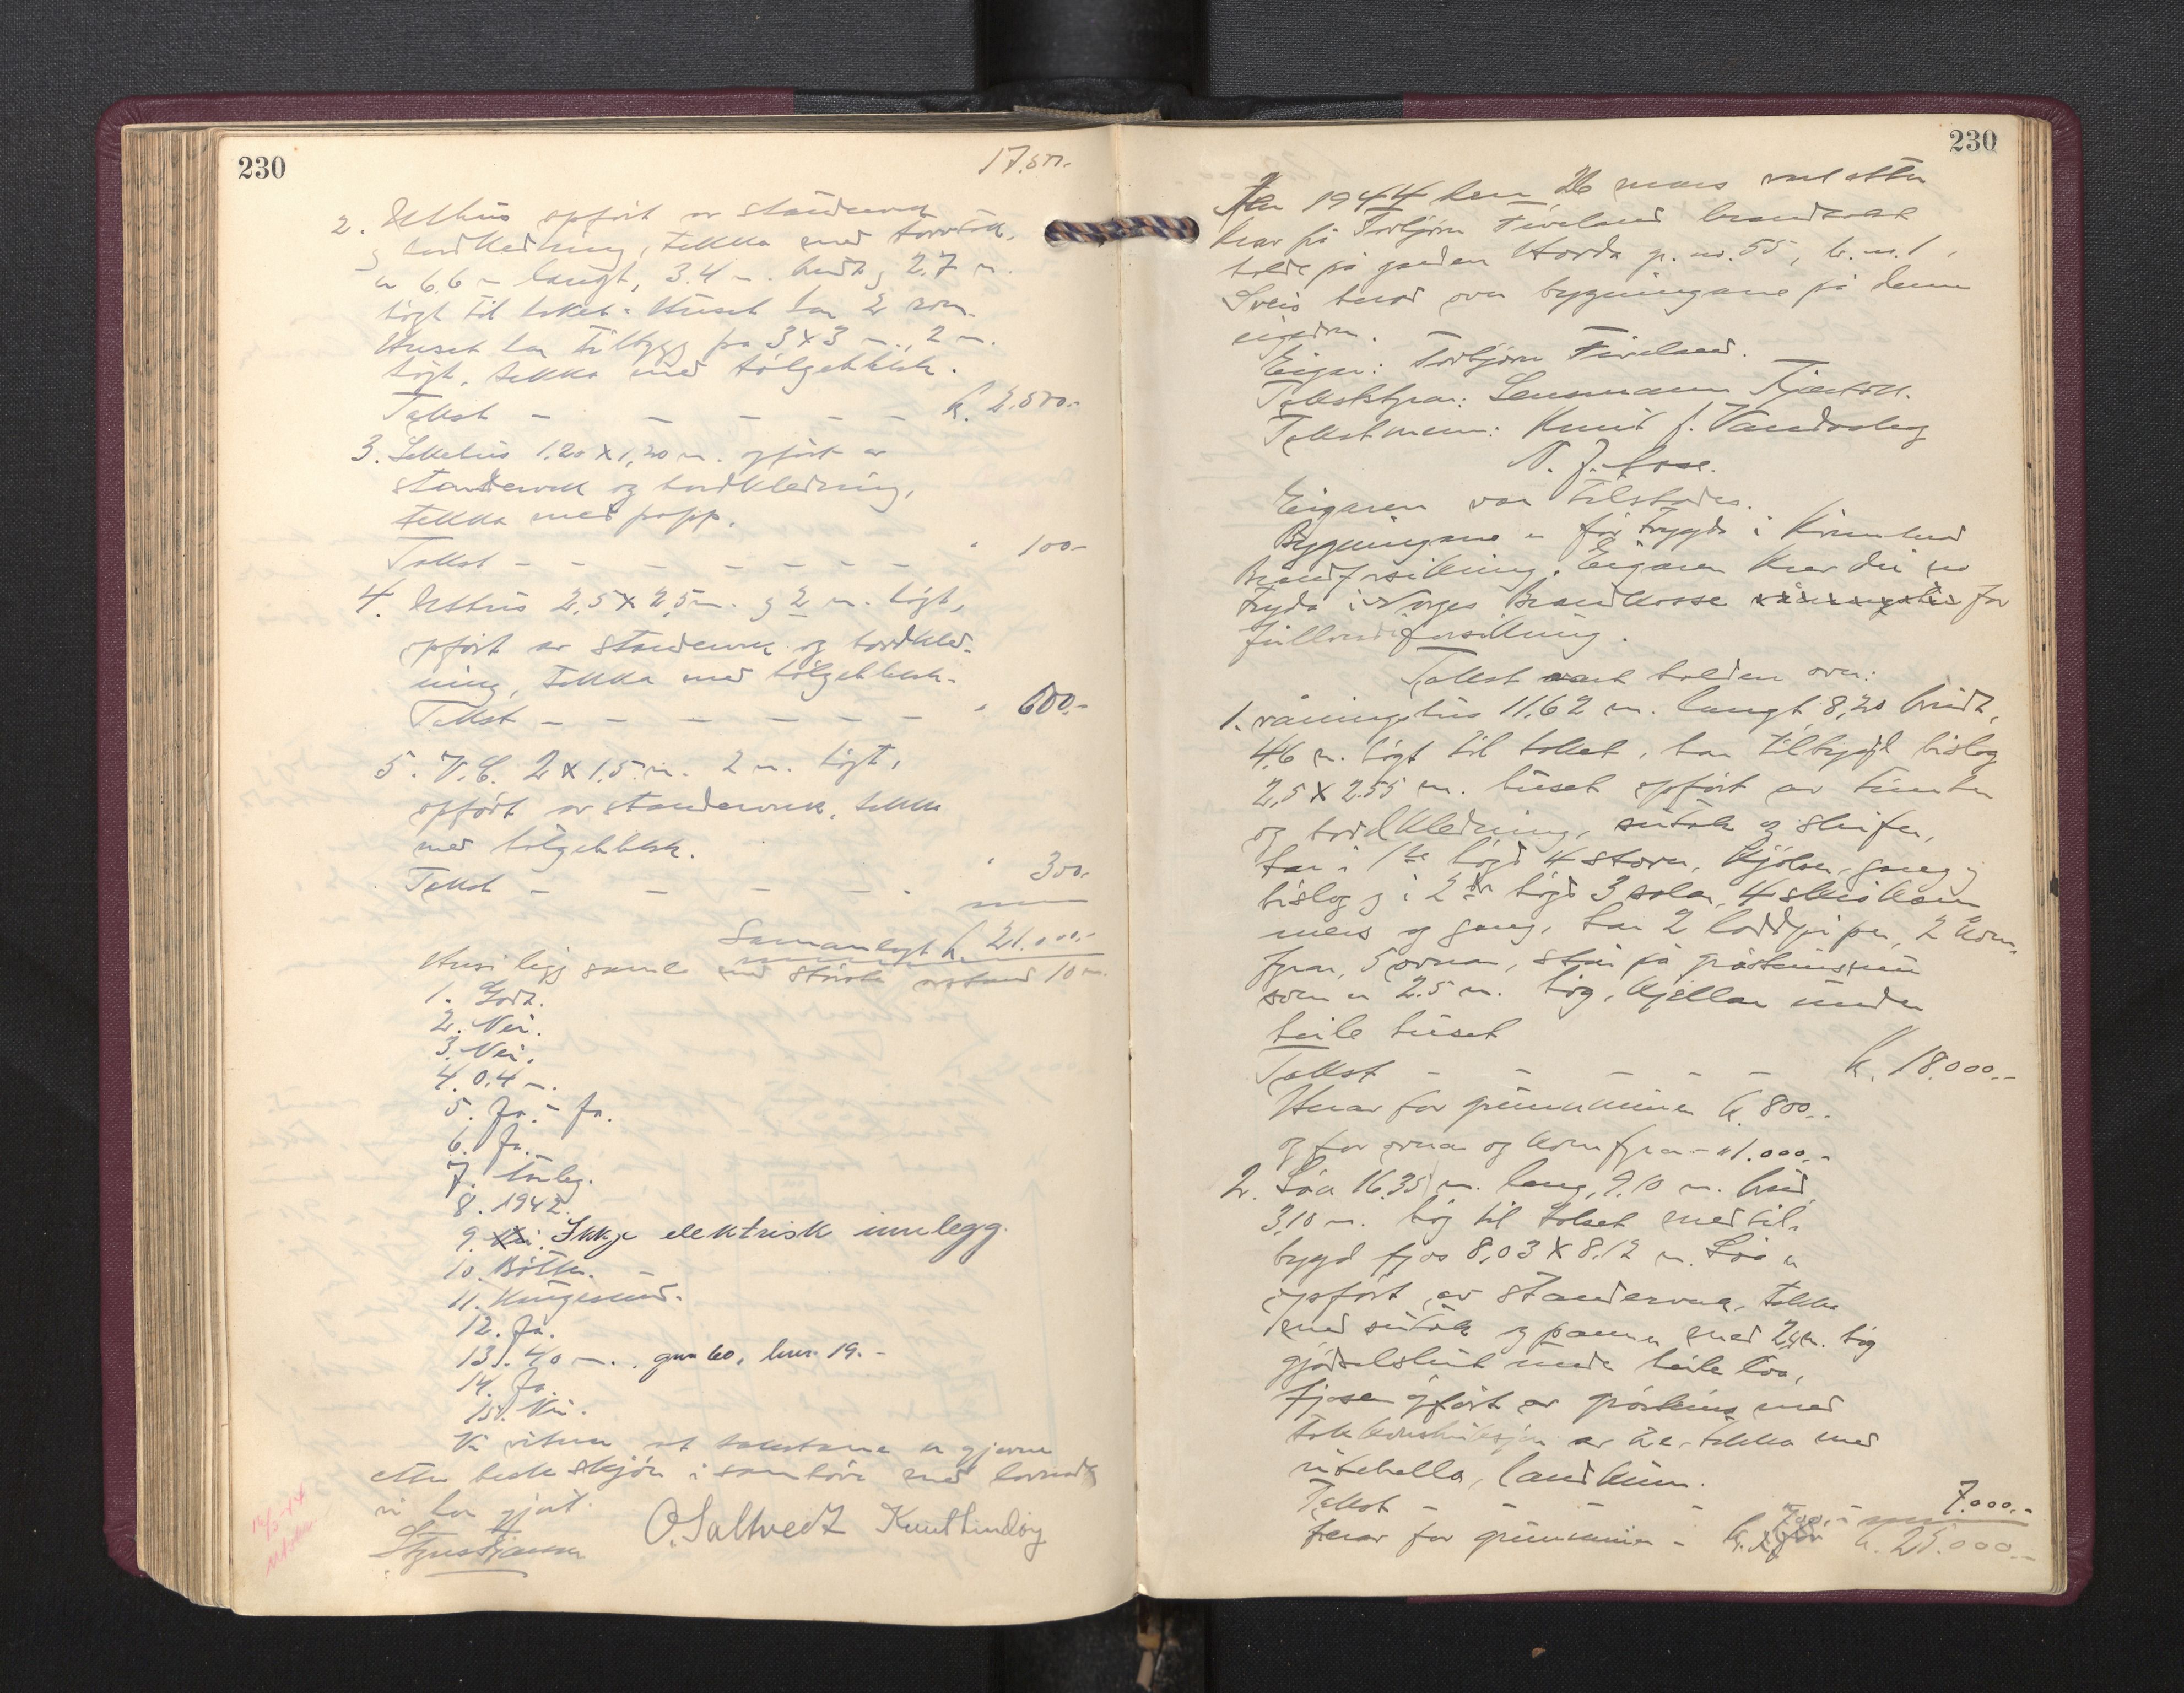 230
17.500.-
2. Uthus opført av standerverk
og bordkledning, tekka med torvtak,
er 6.6 m langt, 3.4 m. breidt og 2.7 m.
høgt til taket. Huset har 2 rom.
Huset har tilbygg på 3x3 m., 2 m.
høgt, tekka med bølgeblikk.
Takst - - - - - k. 2.500.-
3. 1.20 x 1,20 m. opført av
standerverk og bordkledning,
tekka med papp.
Takst - - - - - - - " 100-
4. Uthus 2,5 x 2,5 m. og 2 m. høgt,
opført av standerverk og bordkled-
ning, tekka med bølgeblikk.
Takst - - - - - - " 600.-
5. V.C. 2 x 1.5 m. 2 m. høgt,
opført av standerverk, tekka
med bølgeblikk.
Takst - - - - . " 300.-
Samanlagt k. 21.000.-
Husi ligg samla med største avstand 10 m.
1. Godt.
2. Nei.
3. Nei.
4. 0.4 m.
5. Ja. - Ja.
6. Ja.
7.
8. 1942.
9. Ikkje elektrisk innlegg.
10. Bøtter. -
11. Haugesund.
12. Ja.
13. 40 m. . gnr 60, bnr. 19. -
14. Ja.
15. Nei.
Vi vitnar at takstane er gjevne
etter beste skjøn i samhøve med lovnad
vi har gjort.
O. Saltvedt Knut Lindøy
230
År 1944 den 26 mars vart etter
krav frå Torbjørn Føveland brandtakst
halde på garden Horda g. nr. 55, b. nr. 1,
Sveio herad over bygningane på denne
eigedom.
Eigar: Torbjørn Føveland.
Takststyrar: Lensmann
Takstmenn: Knut J. Vandaskog
N. J.
Eigaren var tilstades.
Bygningane er før trygda i
Brandforsikring. Eigaren krev dei no
trygda i Norges Brandkasse for
fullverdiforsikring.
Takst vart halden over:
1. våningshus 11.62 m. langt, 8,20 breidt,
4.6 m. høgt til taket, har tilbygd bislag
2,5 x 2.55 m. huset opført av timber
og bordkledning, sutak og skifer,
har i 1ste høgd 4 stover, kjøken, gang og
bislag og i 2dre høgd 3 salar, 4 skråkam-
mers og gang, har 2 loddpiper, 2 kom-
fyrar, 5 ovnar, står på gråsteinsmur
som er 2.5 m. høg, kjellar under
heile huset
Takst - - - - - k. 18.000.-
Herav for grunnmuren k. 800.-
og for ovnar og komfyrar - " 1.000.-
2. Løa 16.35 m. lang, 9.10 m. breid,
3.10 m. høg til taket med til-
bygd fjøs 8,03 x 8.12 m. Løa er
opført av standerverk, tekka
med sutak og panner med 2,4 m. høg
gjødselskut under heile løa,
fjøsen opført av gråsteins med
takkonstruksjon av tre, tekka med
, landhun.
Takst - - - - - 7.000.-
herav for grunnmuren - k. 700.- k. 25.000.-